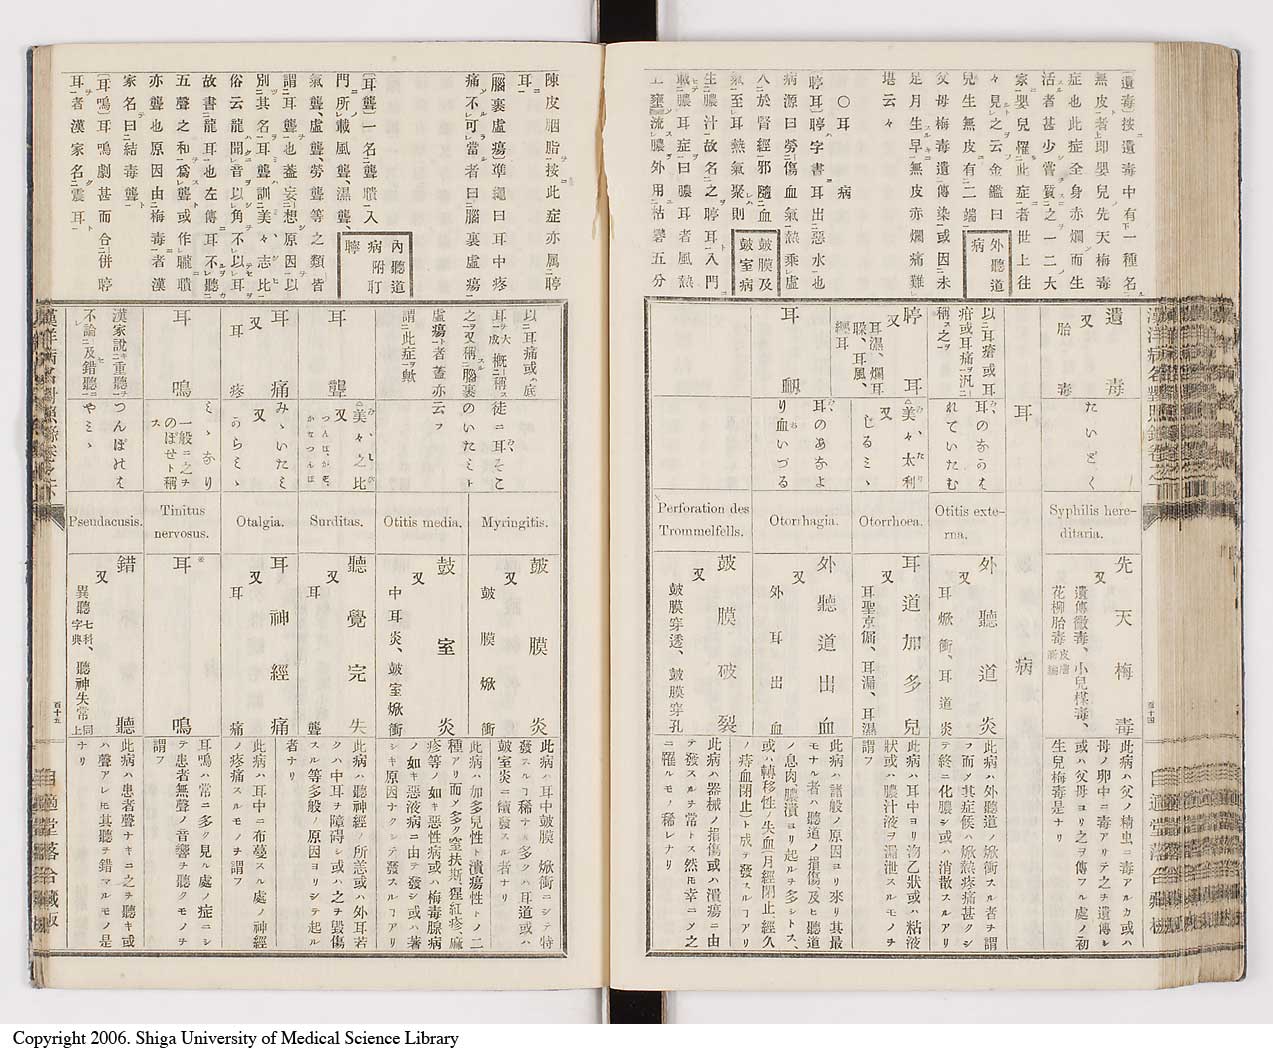 〔遺毒〕按二遺毒中有下一種名
無皮者上即嬰兒先天梅毒
症也此症全身赤爛而生
活者甚少嘗質之一二大
家嬰兒罹此症者世上往
々見之云金鑑曰
兒生無皮有二端
父母梅毒遺傳染或因未
足月生早無皮赤爛痛難
堪云々
外聽道
病
〇耳病
〔聤耳〕聤字書耳出惡水也
病源曰勞傷血氣熱乘虛
入於腎經邪隨血
氣至耳熱氣聚則
生膿汁故名之聤耳入門
載膿耳症曰膿耳者風熱
上壅流膿外用枯礬五分
鼓膜及
鼓室病
遺毒
又
胎毒
たいどく
Syphilis here-
ditaria.
先天梅毒
又
遺傳黴毒、小兒楳毒、
花柳胎毒
此病ハ父ノ精虫ニ毒アルカ或ハ
母ノ卵中ニ毒アリテ之チ遺傳シ
或ハ父母ヨリ之ヲ傳フル處ノ初
生兒梅毒是ナリ
耳
病
以耳瘡或耳
疳或耳痛汎
稱之
耳のあのは
れていたむ
Otitis exte-
rna.
外聽道炎
又
耳焮衝、耳道炎
此病ハ外聽道ノ焮衝スル者チ謂
フ而メ其症候ハ焮熱疼痛甚タクシ
テ終ニ化膿シ或ハ消散スルアリ
聤耳
又
耳濕、爛耳
膿、耳風、
纒耳
美々、太利
又
じるみゝ
Otorrhoea.
耳道加多兒
又
耳聖京偏、耳漏、耳濕
此病ハ耳中ヨリ沕乙狀或ハ粘液
狀或ハ膿汁液ヲ漏泄スルモノチ
謂フ
耳衄
耳のあなよ
り血いづる
Otorrhagia.
外聽道出血
又
外耳出血
此病ハ諸般ノ原因ヨリ來リ其最
モナル者ハ聽道ノ損傷及ヒ聽道
ノ息肉膿潰ヨリ起ルチ多シトス、
或ハ轉移性ノ失血(月經閉止經久
ノ痔血閉止)ト成テ發スルコアリ
Perforation des
Trommelfells.
鼓膜破裂
又
鼓膜穿透、鼓膜穿孔
此病ハ器械ノ損傷或ハ潰瘍ニ由
テ發スルチ常トス然𪜈幸ニメ之
ニ罹ルモノ稀レナリ
漢洋病名對照錄卷之
百十四
自適堂落合藏板
陳皮胭脂按此症亦属聤
耳
〔腦裏虛瘍〕準繩曰耳中疼
痛不可當者曰腦裏虛瘍
內聽道
病附耵
聹
〔耳聾〕一名聾聵入
門所載風聾濕聾、
氣聾、虛聾、勞聾等之類皆
謂耳聾也蓋妄想原因以
別其名耳聾訓美々志比
俗云龍聞音以角不以耳
故書龍耳也左傳耳不聽
五聲之和為聾或作矓聵
亦聾也原因由梅毒者漢
家名曰結毒聾
〔耳鳴〕耳鳴劇甚而合併聤
耳者漢家名震耳
以耳痛或底
耳大成概稱
之又稱腦裏
虛瘍者蓋亦
謂此症歟
徒ニ耳そこ
のいたミト
云フ
Myringitis.
鼓膜炎
又
鼓膜焮衝
此病ハ耳中鼓膜焮衝ニシテ特
發スルコ稀ナメ多クハ耳道或ハ
鼓室炎ニ續發スル者ナリ
Otitis media.
鼓室炎
又
中耳炎、鼓室焮衝
此病ハ加多兒性ト潰瘍性トノ二
種アリ而メ多ク窒扶斯猩紅疹麻
疹等ノ如キ惡性病或ハ梅毒腺病
ノ如キ惡液病ニ由テ發シ或ハ著
シキ原因ナクシテ發スルコアリ
耳聾
美々之比
又
つんぼ、がぞ、
かなつんぼ
Surditas.
聽覺完失
又
耳聾
此病ハ聽神經ノ所患或ハ外耳若
クハ中耳チ障碍シ或ハ之チ毀傷
スル等多般ノ原因ヨリシテ起ル
者ナリ
耳痛
又
耳疼
みゝいたミ
又
うらミゝ
Otalgia.
耳神經痛
又
耳痛
此病ハ耳中ニ布蔓スル處ノ神經
ノ疼痛スルモノチ謂フ
耳鳴
ミゝなり
一般ニ之チ
のぼせト稱
ス
Tinitus
nervosus.
耳鳴
耳鳴ハ常ニ多ク見ル處ノ症ニシ
テ患者無聲ノ音響チ聽クモノチ
謂フ
漢家說重聽
不論及錯聽
つんぼけは
やミゝ
Pseudacusis.
錯聽
又
異聽七科字典、聽神失常同上
此病ハ患者聲ナキニ之チ聽キ或
ハ聲アレ𪜈其聽チ錯マルモノ是
ナリ
漢洋病名對照錄卷之
百十五
自適堂落合藏板
Copyright 2006. Shiga University of Medical Science Library